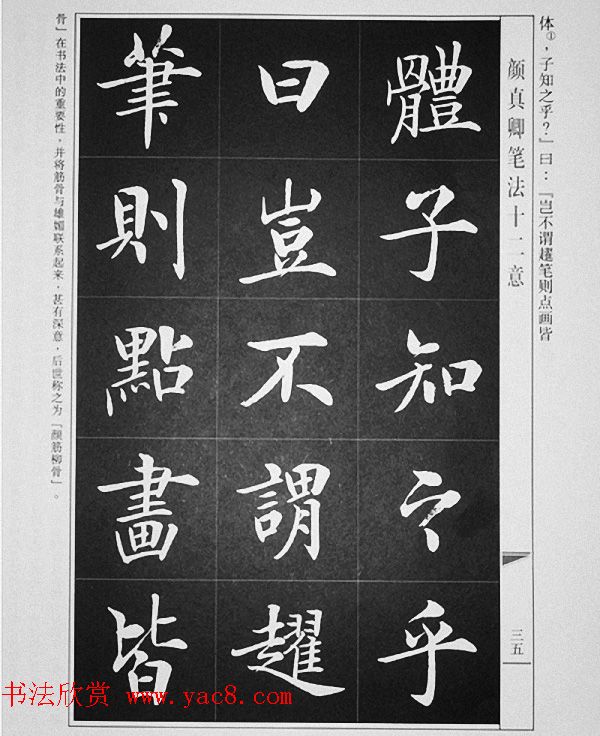 体①，子知之乎？」曰：『岂不谓趯笔则点画皆
颜真卿笔法十二意
三五
體子知之乎
曰豈不謂趯
筆則點畫皆
骨」在书法中的重要性，并将筋骨与雄媚联系起来，甚有深意，后世称之为「颜筋柳骨」。
书法欣赏 www.yac8.com